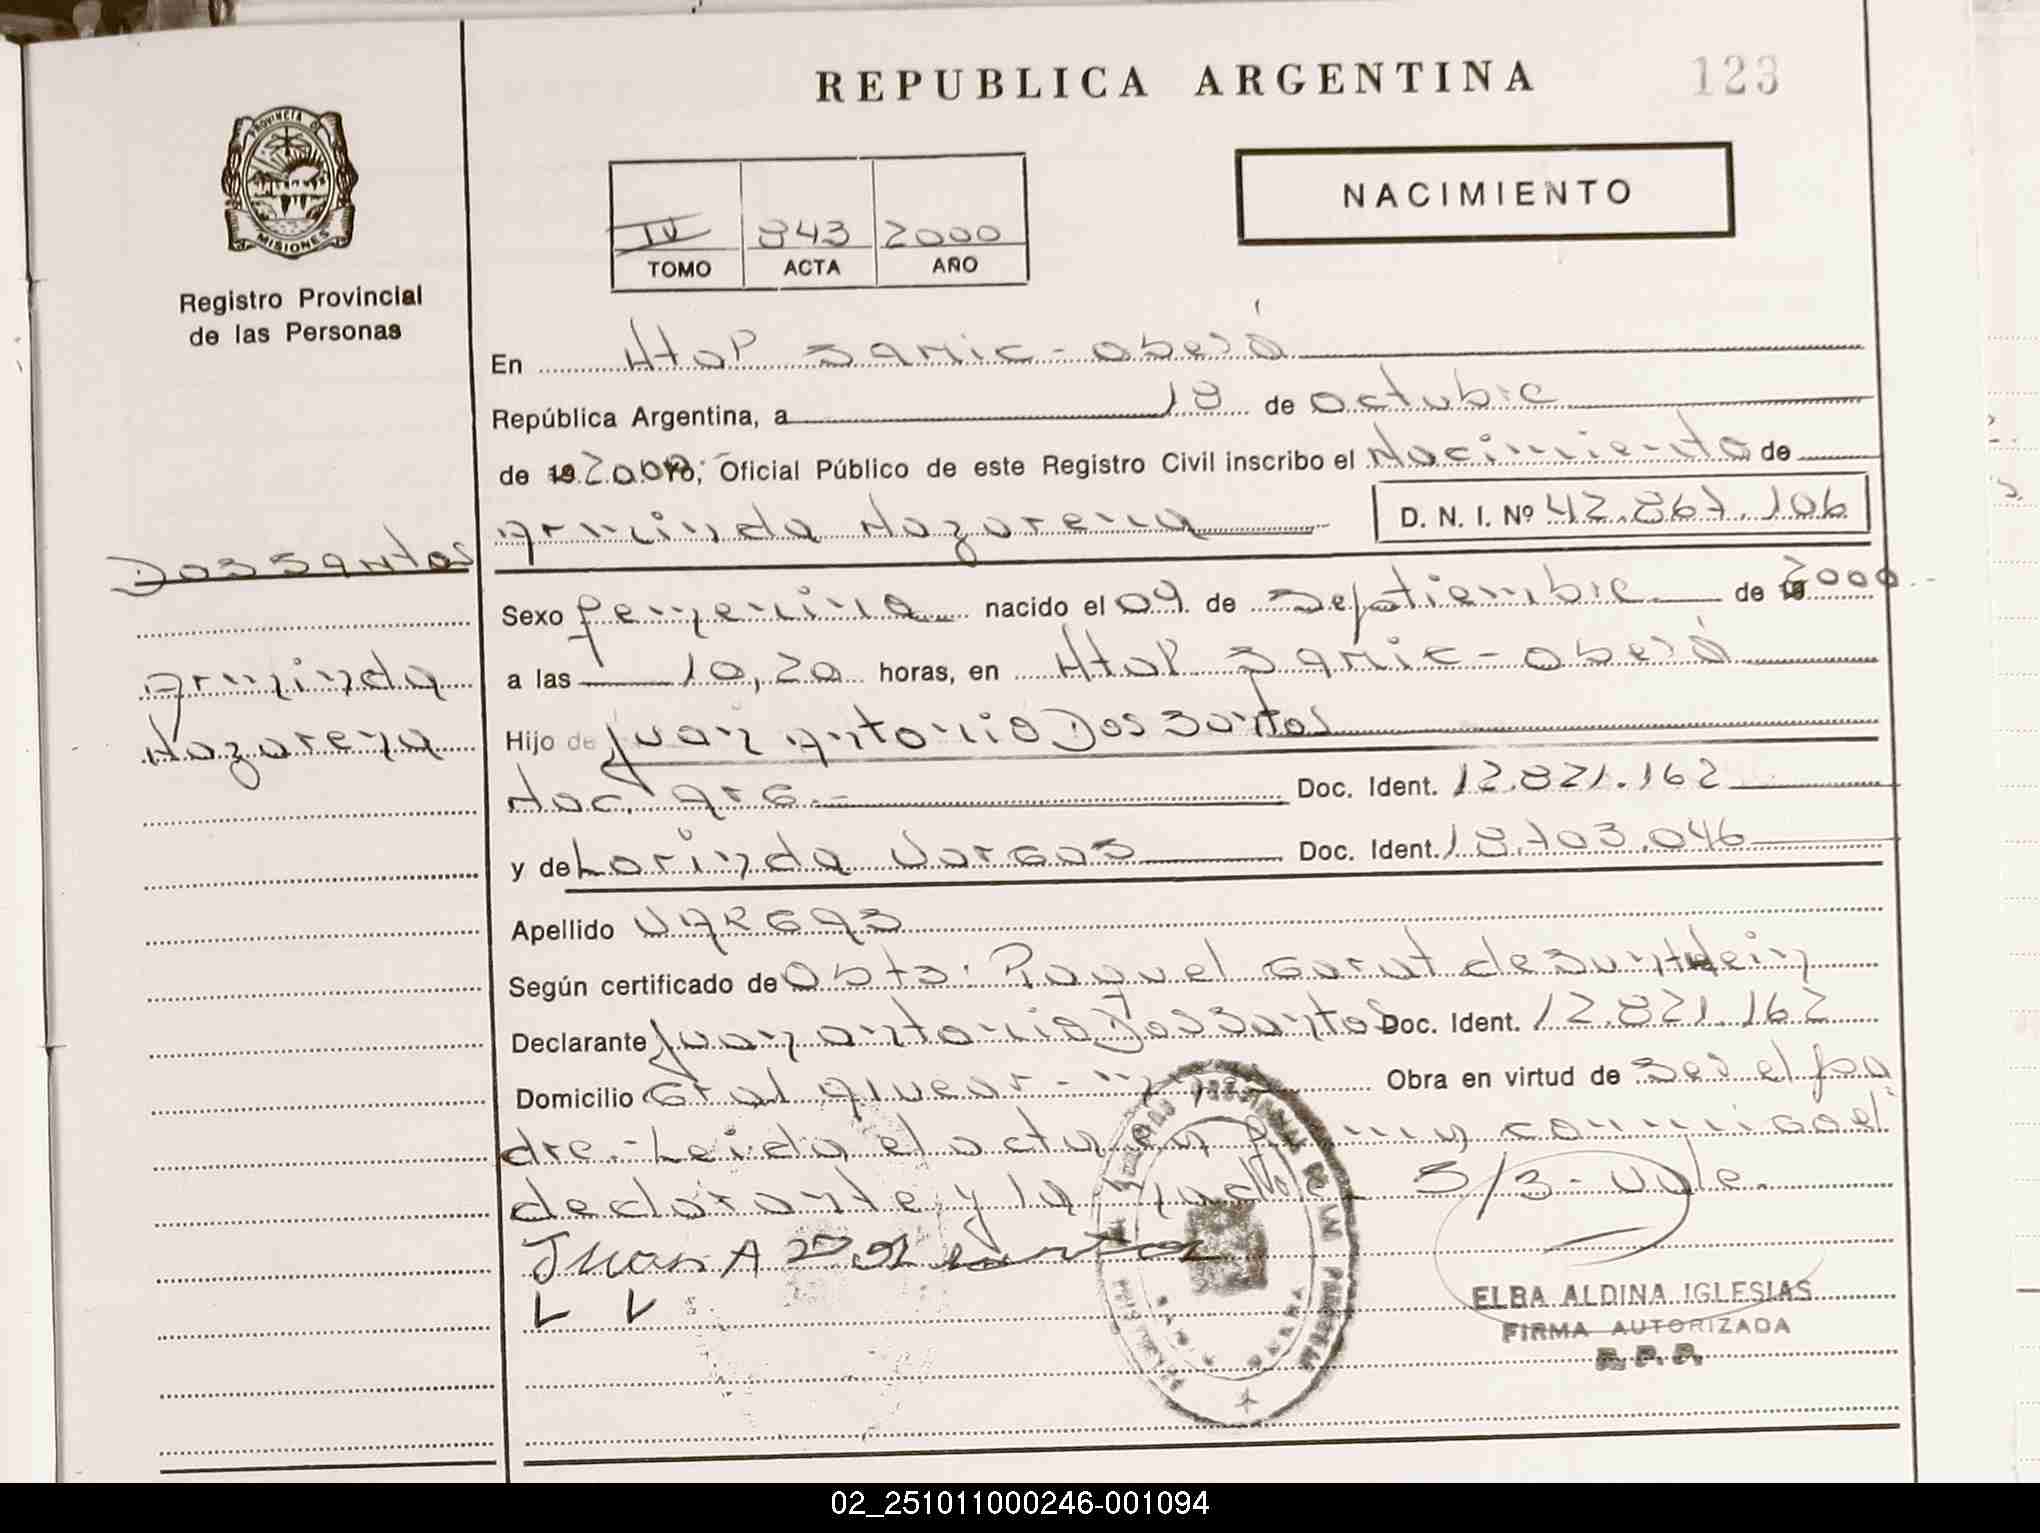 REPUBLICA ARGENTINA
123
PROVINCIA DE
MISIONES
Registro Provincial
de las Personas
NACIMIENTO
IV 843 2000
TOMO ACTA AÑO
En Htal Samic - oberá
República Argentina, a 18 de octubre
de 19 2000 yo, Oficial Público de este Registro Civil inscribo el Nacimiento de
Arminda Nazarena D. N. I. Nº 42.867.106
Dos santos
Arminda
Nazarena
Sexo femenina nacido el 09 de Septiembre de 19 2000.-
a las 10,20 horas, en Htal Samic - oberá
Hijo de Juan Antonio Dos Santos
Nac. arg.- Doc. Ident. 12.821.162
y de Lorinda Vargas Doc. Ident. 18.703.046
Apellido VARGAS
Según certificado de Obst: Raquel de
Declarante Juan antonio Dos Santos Doc. Ident. 12.821.162
Domicilio Gral alvear - Obra en virtud de Ser el pa
dre.- Leida el acta conmigo el
declarante y la madre S/3 - Vale.
Juan A
L V
ELBA ALDINA IGLESIAS
FIRMA AUTORIZADA
R. P. P.
02_251011000246-001094